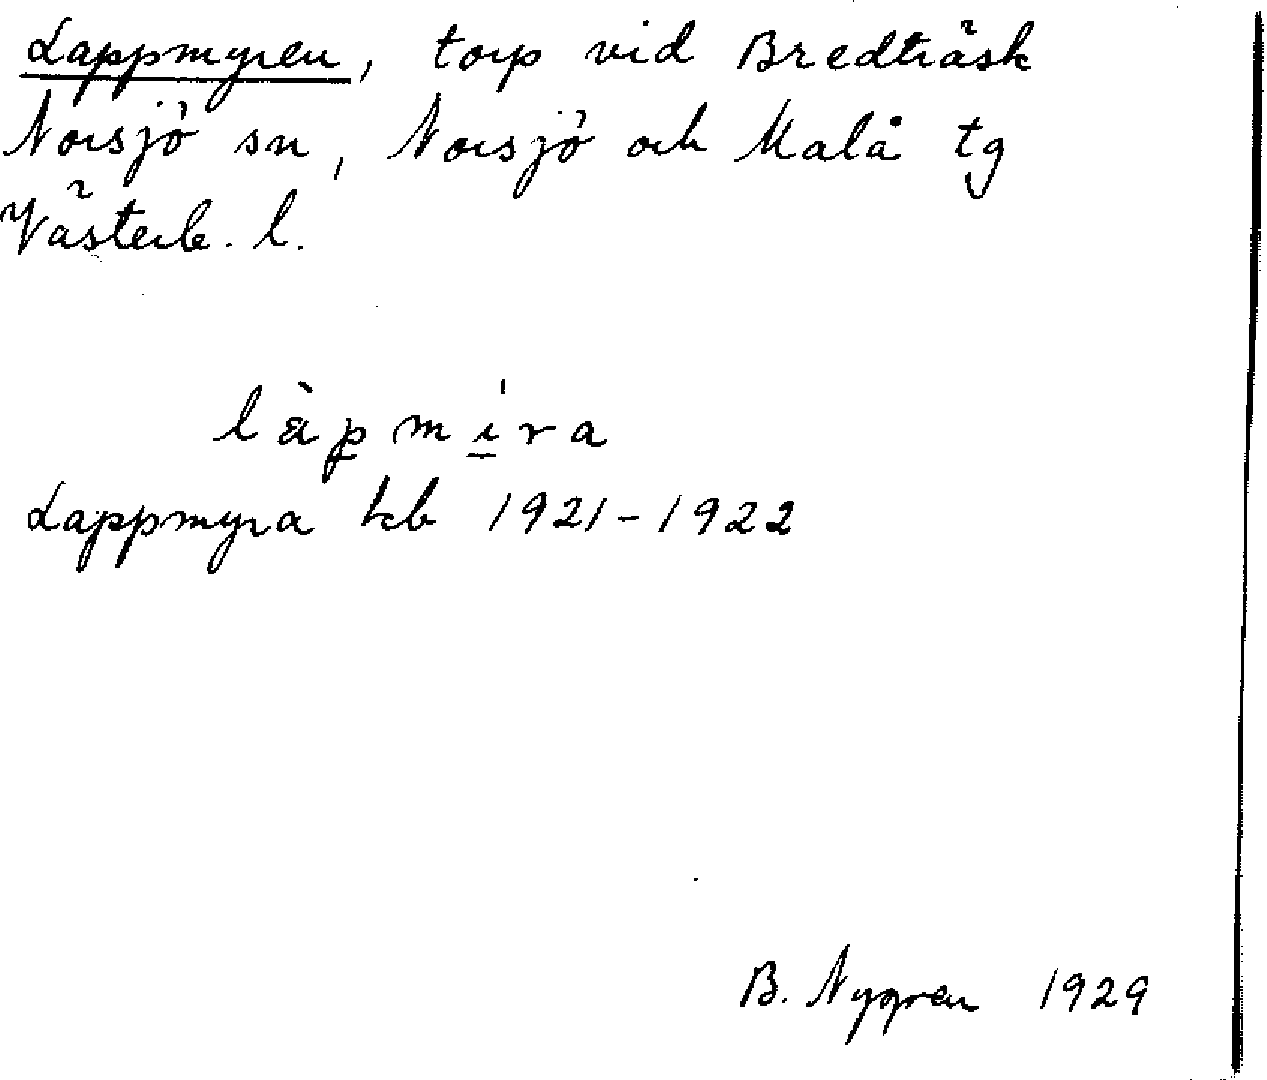 Lappmyren, torp vid Bredträsk
Norsjö sn, Norsjö och Malå tg
Västerb. l.
làpmi̠ra
Lappmyra kb 1921-1922
B. Nygren 1929